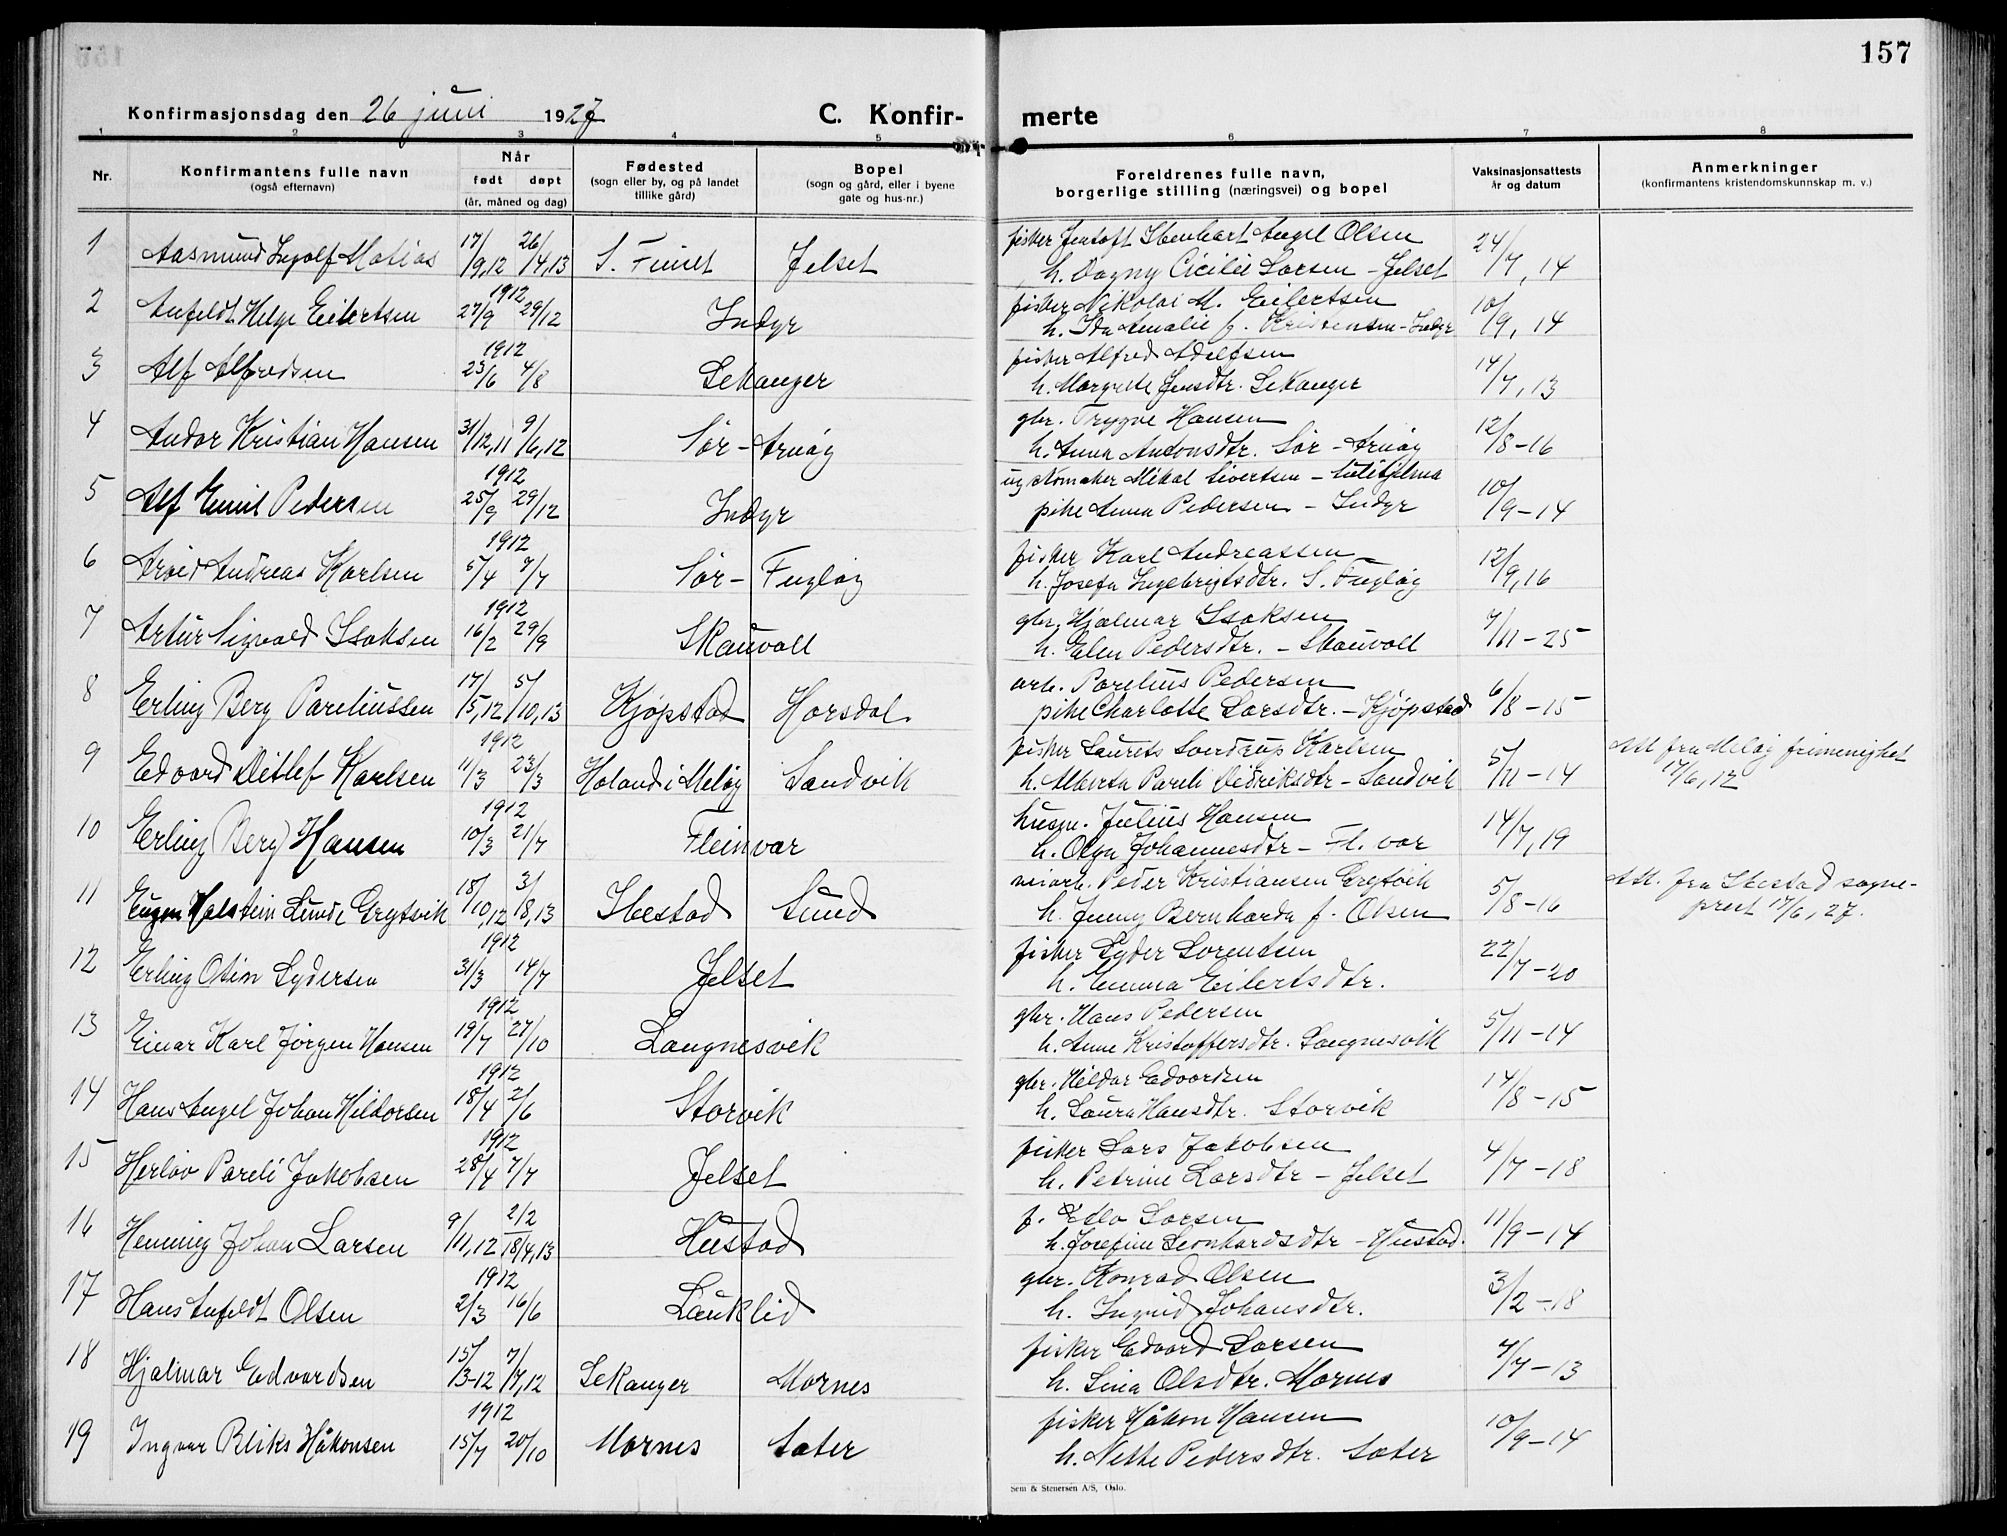 157
Konfirmasjonsdag den 26 juni 1927
C. Konfir-
merte
1 2 3 4 5 6 7 8
Nr.
Konfirmantens fulle navn
(også efternavn)
Når
født døpt
(år, måned og dag)
Fødested
(sogn eller by, og på landet
tillike gård)
Bopel
(sogn og gård, eller i byene
gate og hus-nr.)
Foreldrenes fulle navn,
borgerlige stilling (næringsvei) og bopel
Vaksinasjonsattests
år og datum
Anmerkninger
(konfirmantens kristendomskunnskap m. v.)
1 Aasmund Ingolf Matias 17/9,12 26/4,13 S. Finset Jelset
fisker Jentoft Angel Olsen 24/7, 14
h. Dagny Cicilie Larsen - Jelset
2 Anfeldt Helge Eilertsen 1912 27/9 29/12 Indyr
fisker Nikolai M. Eilertsen 10/9, 14
h. Ida Amalie f. Kristensen - Indyr
3 Alf Alfredsen 1912 23/6 4/8 Sekanger
fisker Alfred Adolfsen 14/7, 13
h. Margrete Jensdtr. Sekanger
4 Andor Kristian Hansen 31/12,11 9/6,12 Sør-Arnøy
gbr. Trygve Hansen 12/8-16
h. Anna Antonsdtr. Sør-Arnøy
5 Alf Emil Pedersen 1912 25/9 29/12 Indyr
ug skomaker Mikal Sivertsen - Sulitjelma 10/9-14
pike Anna Pedersen - Indyr
6 Arvid Andreas Karlsen 1912 5/4 7/7 Sør-Fugløy
fisker Karl Andreassen 12/9,16
h. Josefa Ingebrigtsdtr. S. Fugløy
7 Artur Sigvald Isaksen 1912 16/2 29/9 Skauvoll
gbr. Hjalmar Isaksen 7/11-25
h. Elen Pedersdtr. - Skauvoll
8 Erling Berg Pareliussen 17/5,12 5/10,13 Kjøpstad Horsdal
arb. Parelius Pedersen 6/8-15
pike Charlotte Larsdtr. - Kjøpstad
9 Edvard Ditlef Karlsen 1912 11/3 23/3 Holand i Meløy Sandvik
fisker Laurets Sverdrup Karlsen 5/11-14 Att fra Meløy frimenighet
h. Alberta Pareli Didriksdtr - Sandvik 17/6,12
10 Erling Berg Hansen 1912 10/3 21/7 Fleinvær
husm. Julius Hansen 14/7,19
h. Olga Johannesdtr - Fl. vær
11 Eugen Holstein Lunde Grytøvik 18/10,12 3/8,13 Ibestad Sund
veiarb. Peder Kristiansen Grytøvik 5/8-16 Att. fra Ibestad sogne-
h. Jenny Bernharda f. Olsen prest 17/6,27.
12 Erling Otin Lydersen 1912 31/3 14/7 Jelset
fisker Lyder Lorentsen 22/7-20
h. Emma Eilertsdtr.
13 Einar Karl Jørgen Hansen 1912 19/7 27/10 Langnesvik
gbr. Hans Pedersen 5/11-14
h. Anne Kristoffersdtr. Langnesvik
14 Hans Angel Johan Hildorsen 1912 18/4 2/6 Storvik
gbr. Hildor Edvardsen 14/8-15
h. Laura Hansdtr. Storvik
15 Herlov Pareli Jakobsen 1912 28/4 7/7 Jelset
fisker Lars Jakobsen 4/7-18
h. Petrine Larsdtr - Jelset
16 Henning Johan Larsen 9/11,12 2/2 18/4,13 Hustad
f. Edlo Larsen 11/9-14
h. Josefine Leonhardsdtr - Hustad.
17 Hans Anfeldt Olsen 1912 2/3 16/6 Lauklid
gbr. Konrad Olsen 3/2-18
h. Ingrid Johansdtr.
18 Hjalmar Edvardsen 15/3-12 7/7,12 Sekanger Mornes
fisker Edvard Larsen 4/7-13
h. Lina Olsdtr. Mornes
19 Ingvar Bliks Håkonsen 1912 15/7 20/10 Mornes Sæter
fisker Håkon Hansen 10/9-14
h. Nethe Pedersdtr. Sæter
Sem & Stenersen A/S, Oslo.